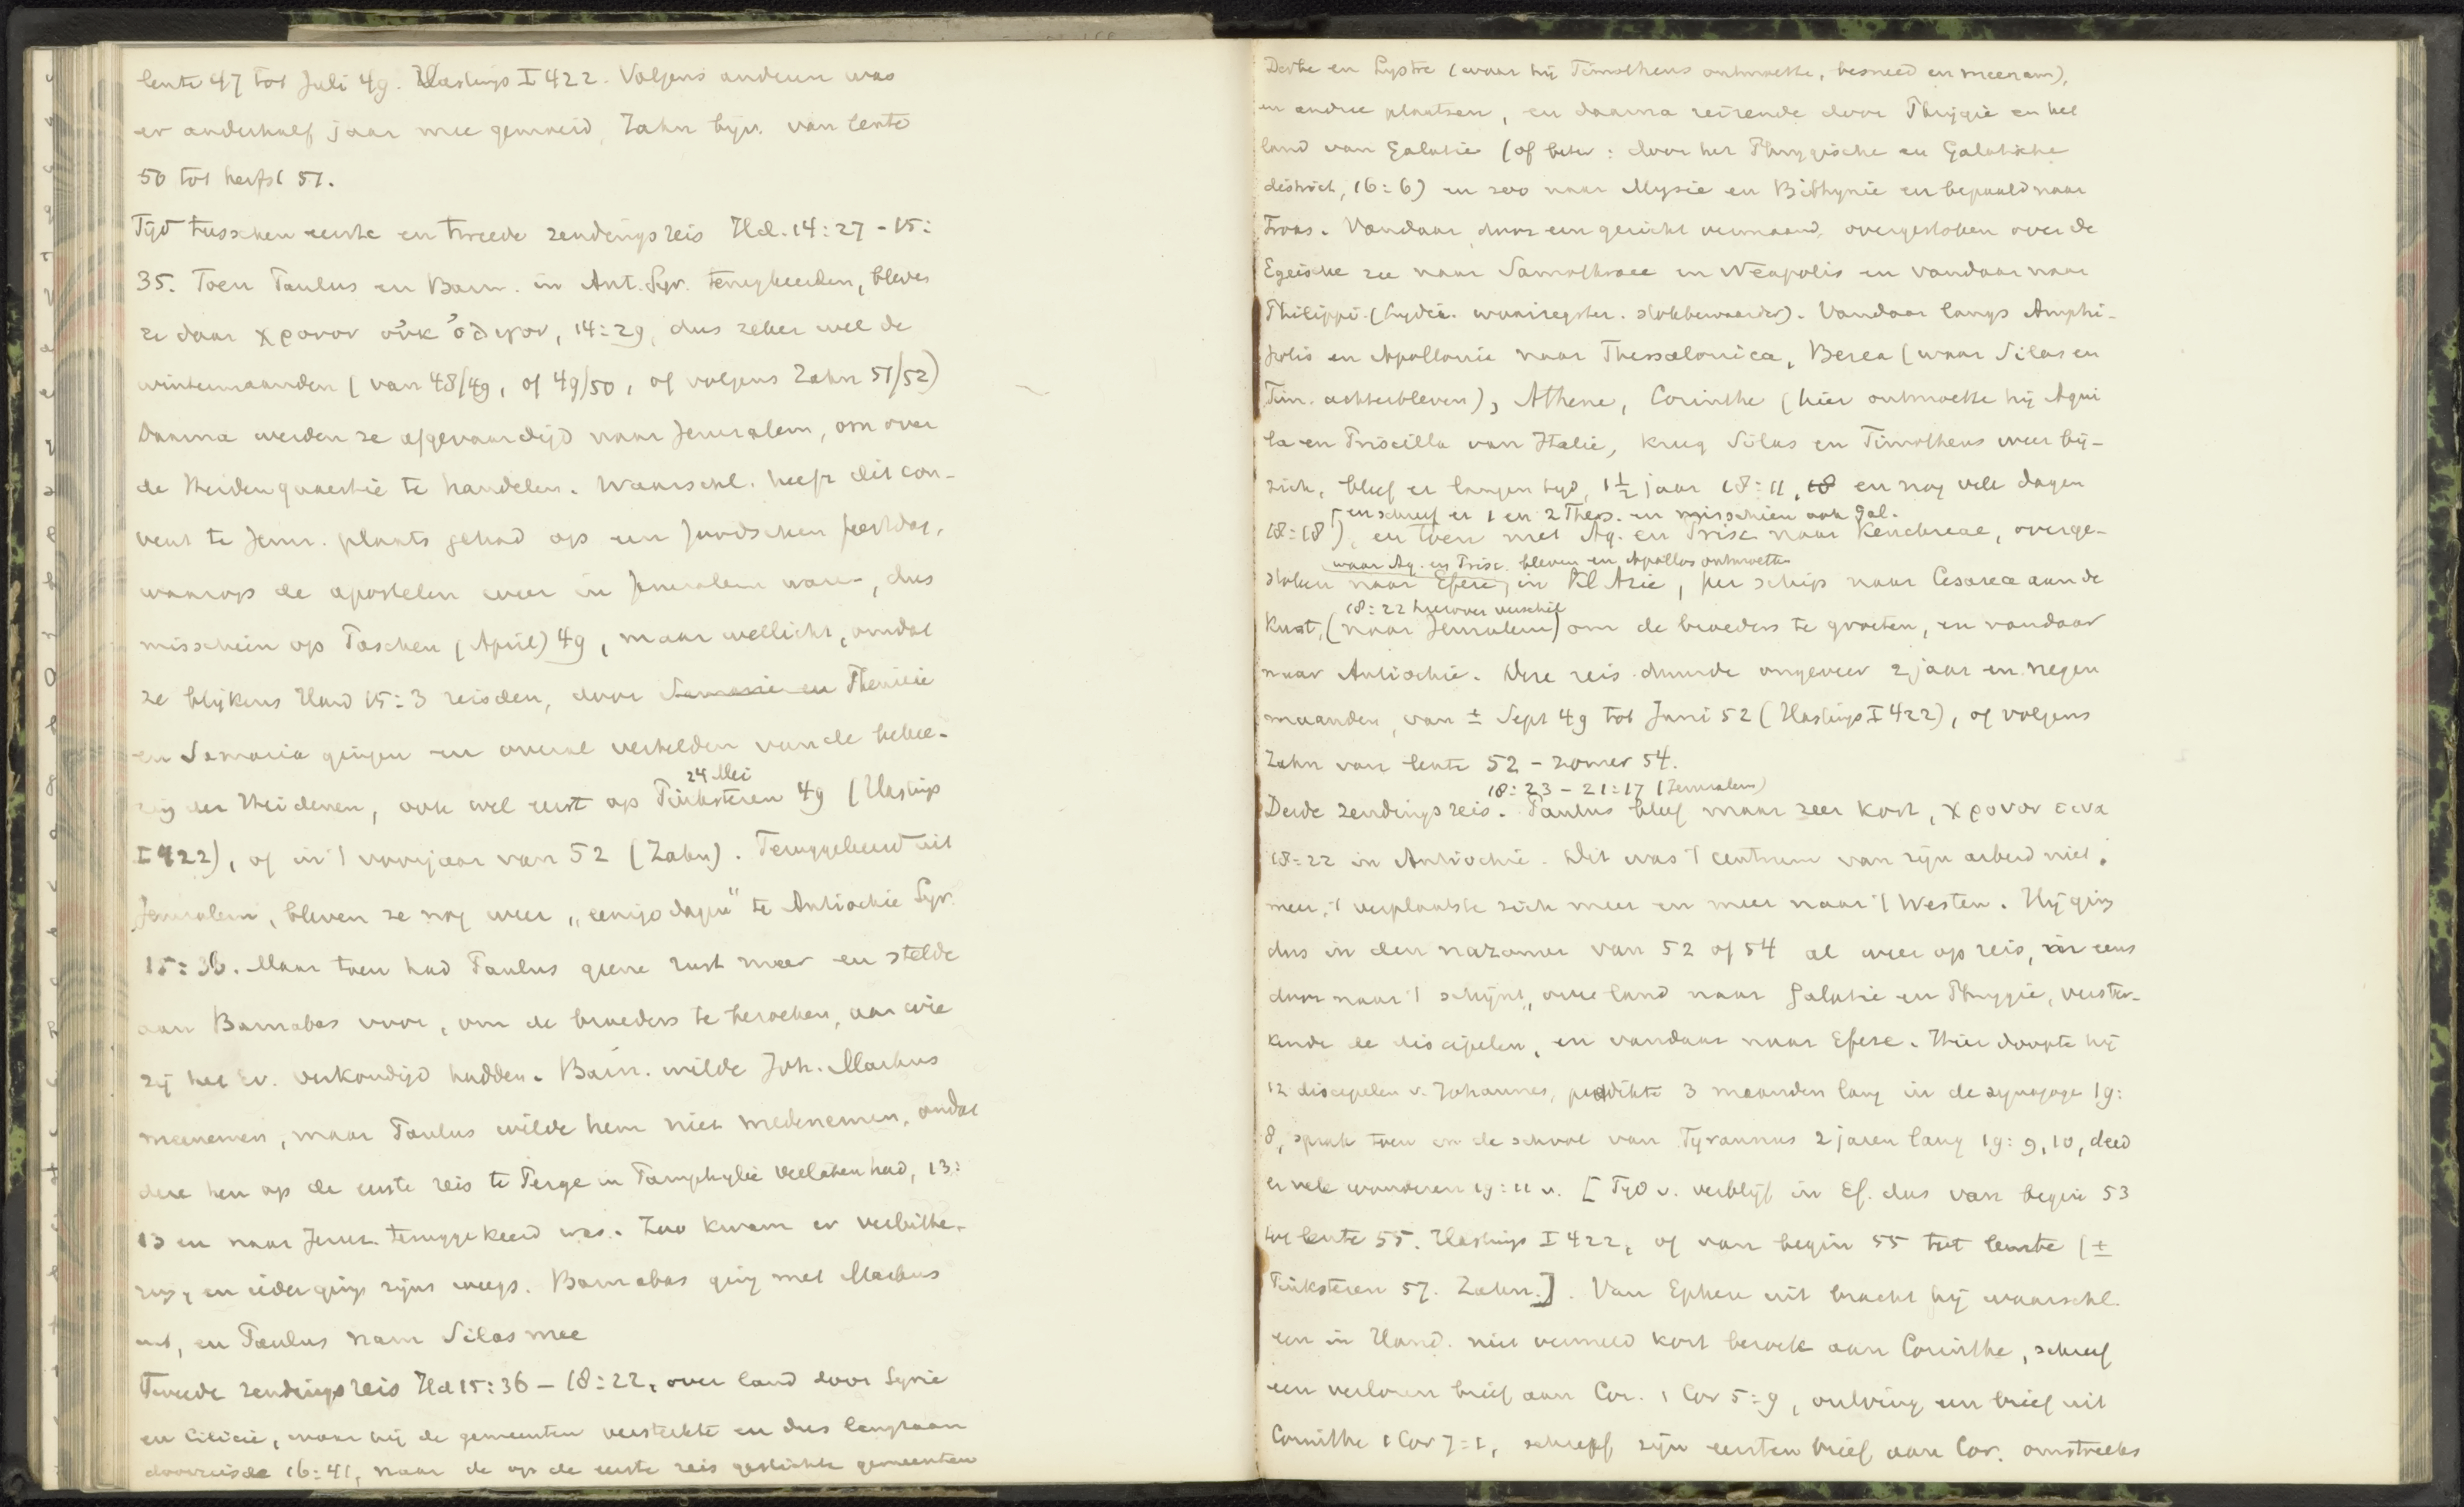 lente 47 tot Juli 49. Hastings I 422. Volgens anderen was
er anderhalf jaar mee gemoeid, Zahn bijv. van lente
50 tot herfst 51.
Tijd tusschen eerste en tweede zendingsreis Hd. 14:27 - 15:
35. Toen Paulus en Barn. in Ant. Syr. terugkeerden, bleven
ze daar χρονον οὐκ ὀλιγον, 14:29, dus zeker wel de
wintermaanden (van 48/49, of 49/50, of volgens Zahn 51/52)
Daarna werden ze afgevaardigd naar Jeruzalem, om over
de Heidenquaestie te handelen. Waarschl. heeft dit con-
vent te Jeruz. plaats gehad op een Joodschen feestdag,
waarop de apostelen weer in Jeruzalem waren, dus
misschien op Paschen (April) 49, maar wellicht, omdat
ze blijkens Hand 15:3 reisden, door Samarie en Phenicie
en Samaria gingen en overal vertelden van de bekee-
24 Mei
ring der Heidenen, ook wel eerst op Pinksteren 49 (Hastings
I 422), of in 't voorjaar van 52 (Zahn). Teruggekeerd uit
Jeruzalem, bleven ze nog weer „eenige dagen" te Antiochie Syr.
15:36. Maar toen had Paulus geene rust meer en stelde
aan Barnabas voor, om de broeders te bezoeken, aan wie
zij het Ev. verkondigd hadden. Barn. wilde Joh. Markus
meenemen, maar Paulus wilde hem niet medenemen, omdat
deze hen op de eerste reis te Perge in Pamphylie verlaten had, 13:
13 en naar Jeruz. teruggekeerd was. Zoo kwam er verbitte-
ring, en ieder ging zijns weegs. Barnabas ging met Markus
uit, en Paulus nam Silas mee
Tweede zendingsreis Hd 15:36 - 18:22, over land door Syrie
en Cilicie, waar hij de gemeenten versterkte en dus langzaam
doorreisde 16:41, naar de op de eerste reis gestichte gemeenten
Derbe en Lystre (waar hij Timotheus ontmoette, besneed en meenam),
en andere plaatsen, en daarna reizende door Phrygie en het
land van Galatie (of beter: door het Phrygische en Galatische
district, 16:6) en zoo naar Mysie en Bithynie en bepaald naar
Troas. Vandaar, door een gezicht vermaand, overgestoken over de
Egeische zee naar Samothrace en Neapolis en vandaar naar
Philippi. (Lydia. waarzegster. stokbewaarder). Vandaar langs Amphi-
polis en Apollonie naar Thessalonica, Berea (waar Silas en
Tim. achterbleven), Athene, Corinthe (hier ontmoette hij Aqui
la en Priscilla van Italie, kreeg Silas en Timotheus weer bij
zich, bleef er langen tijd, 1½ jaar 18:11, 18 en nog vele dagen
[en schreef er 1 en 2 Thess. en misschien ook Gal.
18:18), en toen met Aq. en Prisc. naar Kenchreae, overge-
waar Aq. en Prisc. bleven en Apollos ontmoetten
stoken naar Efeze, in Kl Azie, per schip naar Cesarea aan de
18:22 hierover verschil
Kust, (naar Jeruzalem) om de broeders te groeten, en vandaar
naar Antiochie. Deze reis duurde ongeveer 2 jaar en negen
maanden, van ± Sept 49 tot Juni 52 (Hastings I 422), of volgens
Zahn van lente 52 - zomer 54.
18:23 - 21:17 (Jeruzalem)
Derde zendingsreis. Paulus bleef maar zeer kort, χρονον τινα
18:22 in Antiochie. Dit was 't centrum van zijn arbeid niet
meer, 't verplaatste zich meer en meer naar 't Westen. Hij ging
dus in den nazomer van 52 of 54 al weer op reis, eens
door naar 't schijnt, over land naar Galatie en Phrygie, verster-
kende de discipelen, en vandaar naar Efeze. Hier doopte hij
12 discipelen v. Johannes, predikte 3 maanden lang in de synagoge 19:
8, sprak toen in de school van Tyrannus 2 jaren lang 19:9,10, deed
er vele wonderen 19:11 v. [Tijd v. verblijf in Ef. dus van begin 53
tot lente 55. Hastings I 422, of van begin 55 tot lente (±
Pinksteren 57. Zahn.]. Van Ephese uit bracht hij waarschl.
een in Hand. niet vermeld kort bezoek aan Corinthe, schreef
een verloren brief aan Cor. 1 Cor 5:9, ontving een brief uit
Corinthe 1 Cor 7:1, schreef zijn eersten brief aan Cor. omstreeks